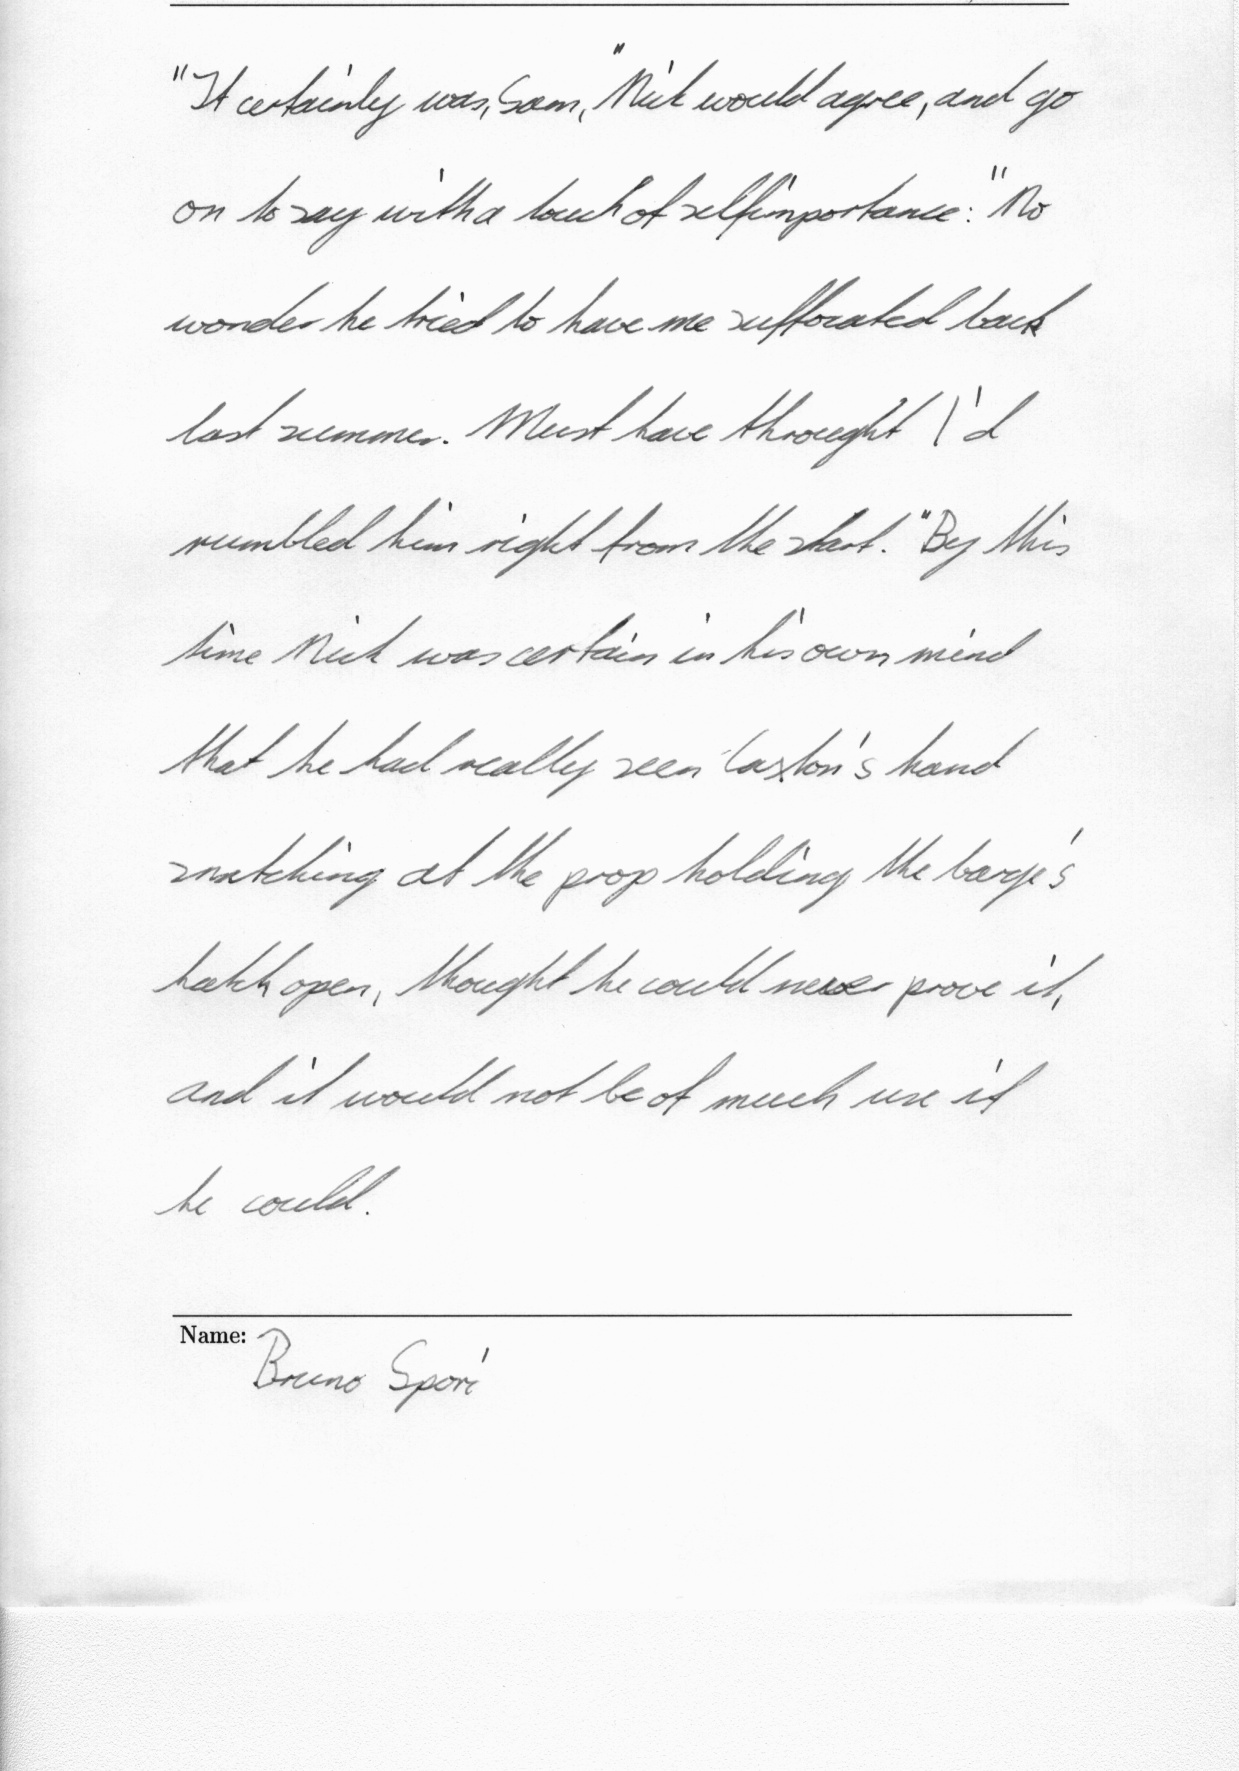 "It certainly was, Sam," Nick would agree, and go
on to say with a touch of selfimportance: "No
wonder he tried to have me suffocated back
last summer. Must have throught I'd
rumbled him right from the start." By this
time Nick was certain in his own mind
that he had really seen Caxton's hand
snatching at the prop holding the barge's
hatch open, thought he could never prove it,
and it would not be of much use if
he could.
Name:
Bruno Spori